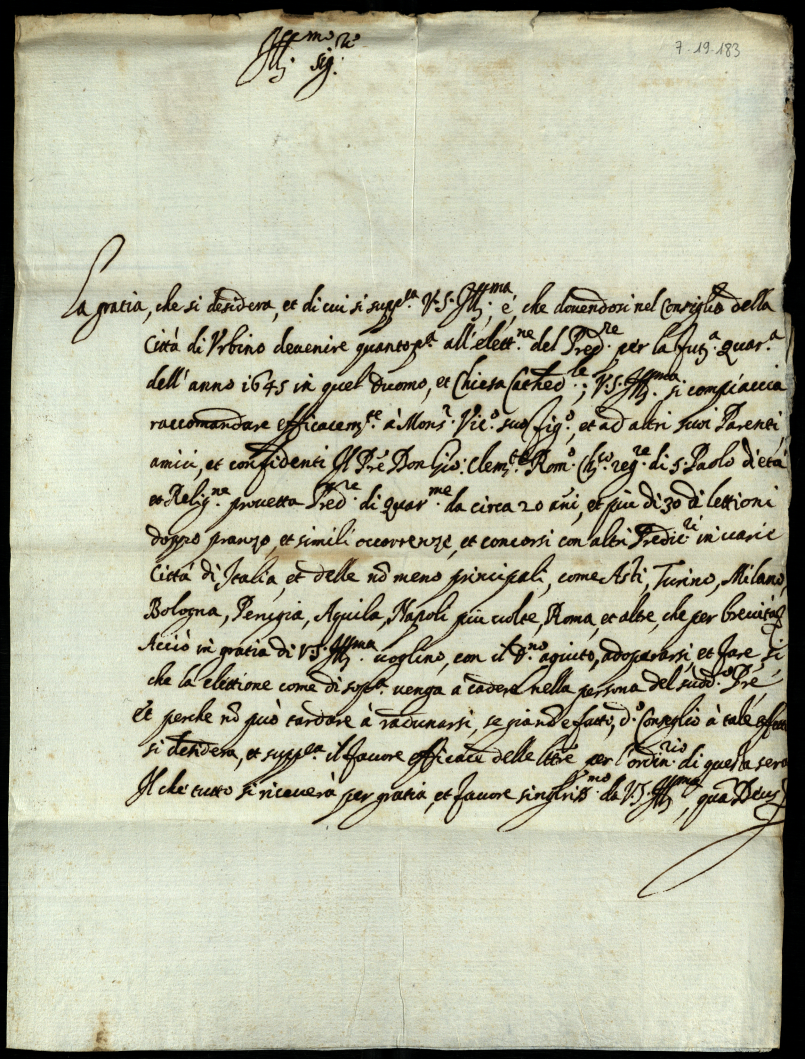 Ill.mo sig.re
7-19-183
La gratia, che si desidera, et di cui si supp.ca V.S. Ill.ma, é, che douendosi nel Consiglio della
Città di Vrbino deuenire quanto p.a all'elett.ne del Pred.re per la fut.a Quar.a
dell'anno 1645 in quel duomo, et Chiesa Cathed.le; V.S. Ill.ma si compiaccia
raccomandare efficacem.te à Mons.r Vic.o suo fig.o, et ad altri suoi Parenti
amici, et confidenti Il Pre Don Gio: Clem.te Rom.o Ch.co reg.re di S. Paolo d'età
et Relig.ne prouetta Pred.re di Quar.me da circa 20 añi, et più di 30 di lettioni
doppo pranzo, et simili occorrenze, et concorsi con altri Predic.ri in uarie
Città di Italia, et delle nõ meno principali, come Asti, Turino, Milano,
Bologna, Perugia, Aquila, Napoli piu uolte, Roma, et altre, che per breuità
Acciò in gratia di V.S. Ill.ma uoglino, con il d.no agiuto, adopararsi, et fare, si
che la elettione come di sop.a uenga à cadere nella persona del sudd.o Pre
Et perche nõ può tardare à radunarsi, se già nõ è fatto, d.o Conseglio à tale effetto
si desidera, et supp.ca il fauore efficace delle lttre per l'ordin.rio di questa sera
Il che tutto si riceuerà per gratia, et fauore singlriss.mo da V.S. Ill.ma, quã Deus